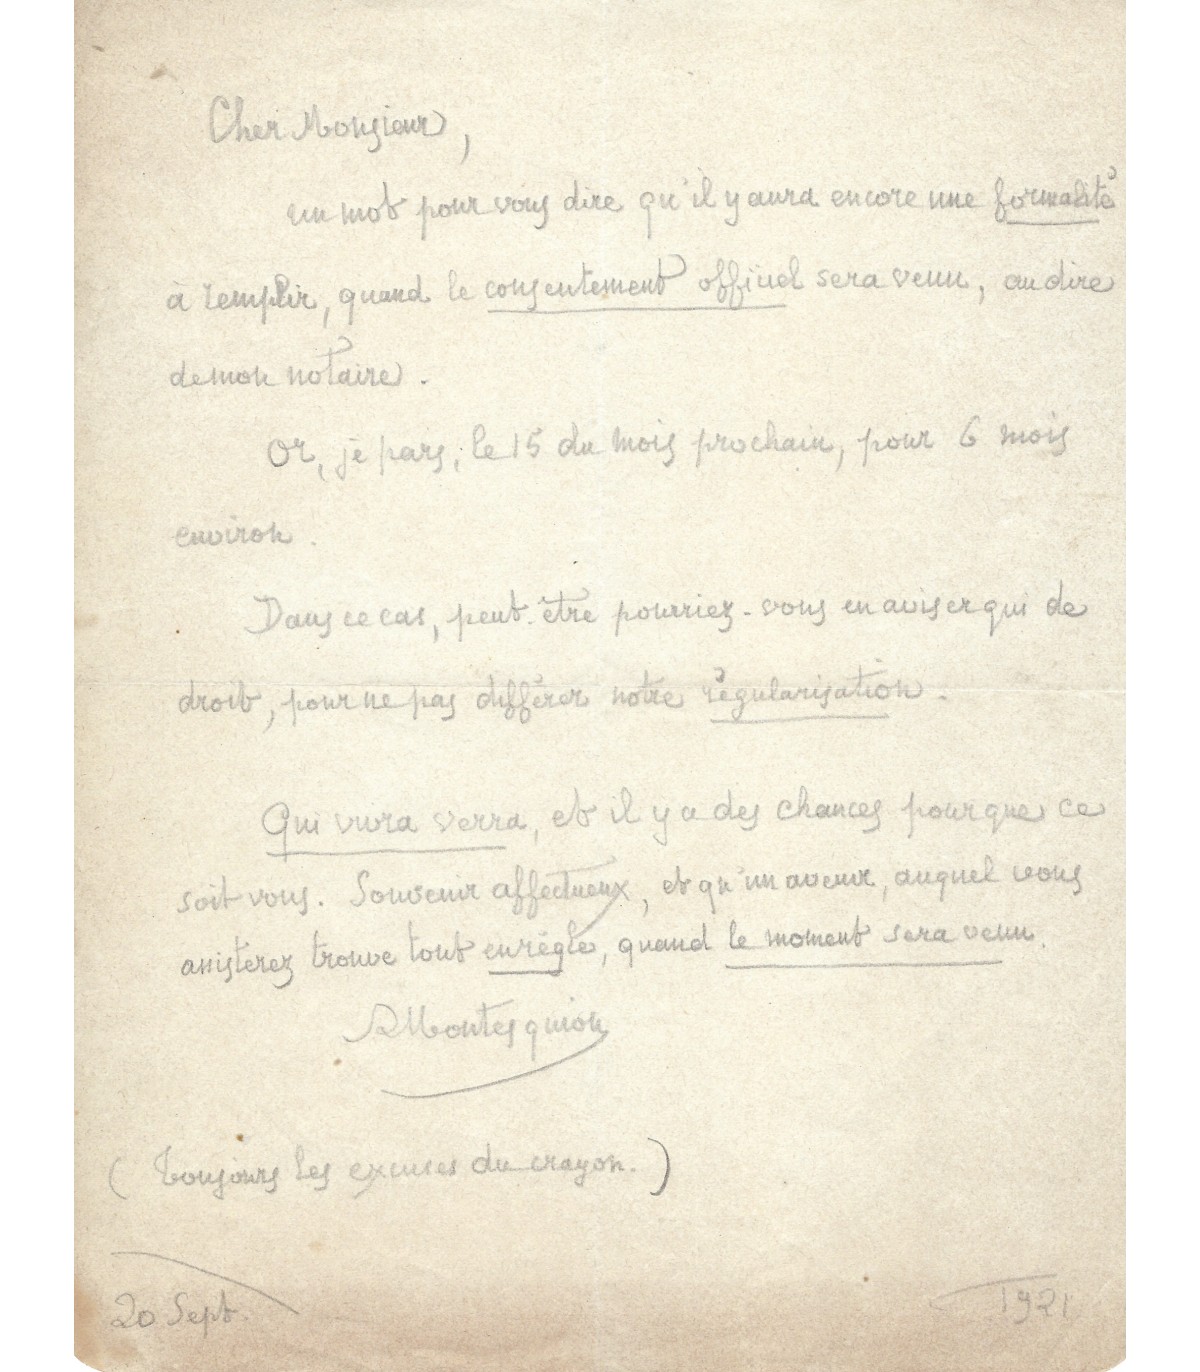 Cher Monsieur,
un mot pour vous dire qu'il y aura encore une formalité
à remplir, quand le consentement officiel sera venu, au dire
de mon notaire.
Or, je pars, le 15 du mois prochain, pour 6 mois
environ.
Dans ce cas, peut-être pourriez-vous en aviser qui de
droit, pour ne pas différer notre régularisation.
Qui vivra verra, et il y a des chances pour que ce
soit vous. Souvenir affectueux, et qu'un avenir, auquel vous
assisterez trouve tout en règle, quand le moment sera venu.
R Montesquiou
(Toujours les excuses du crayon.)
20 Sept. 1921